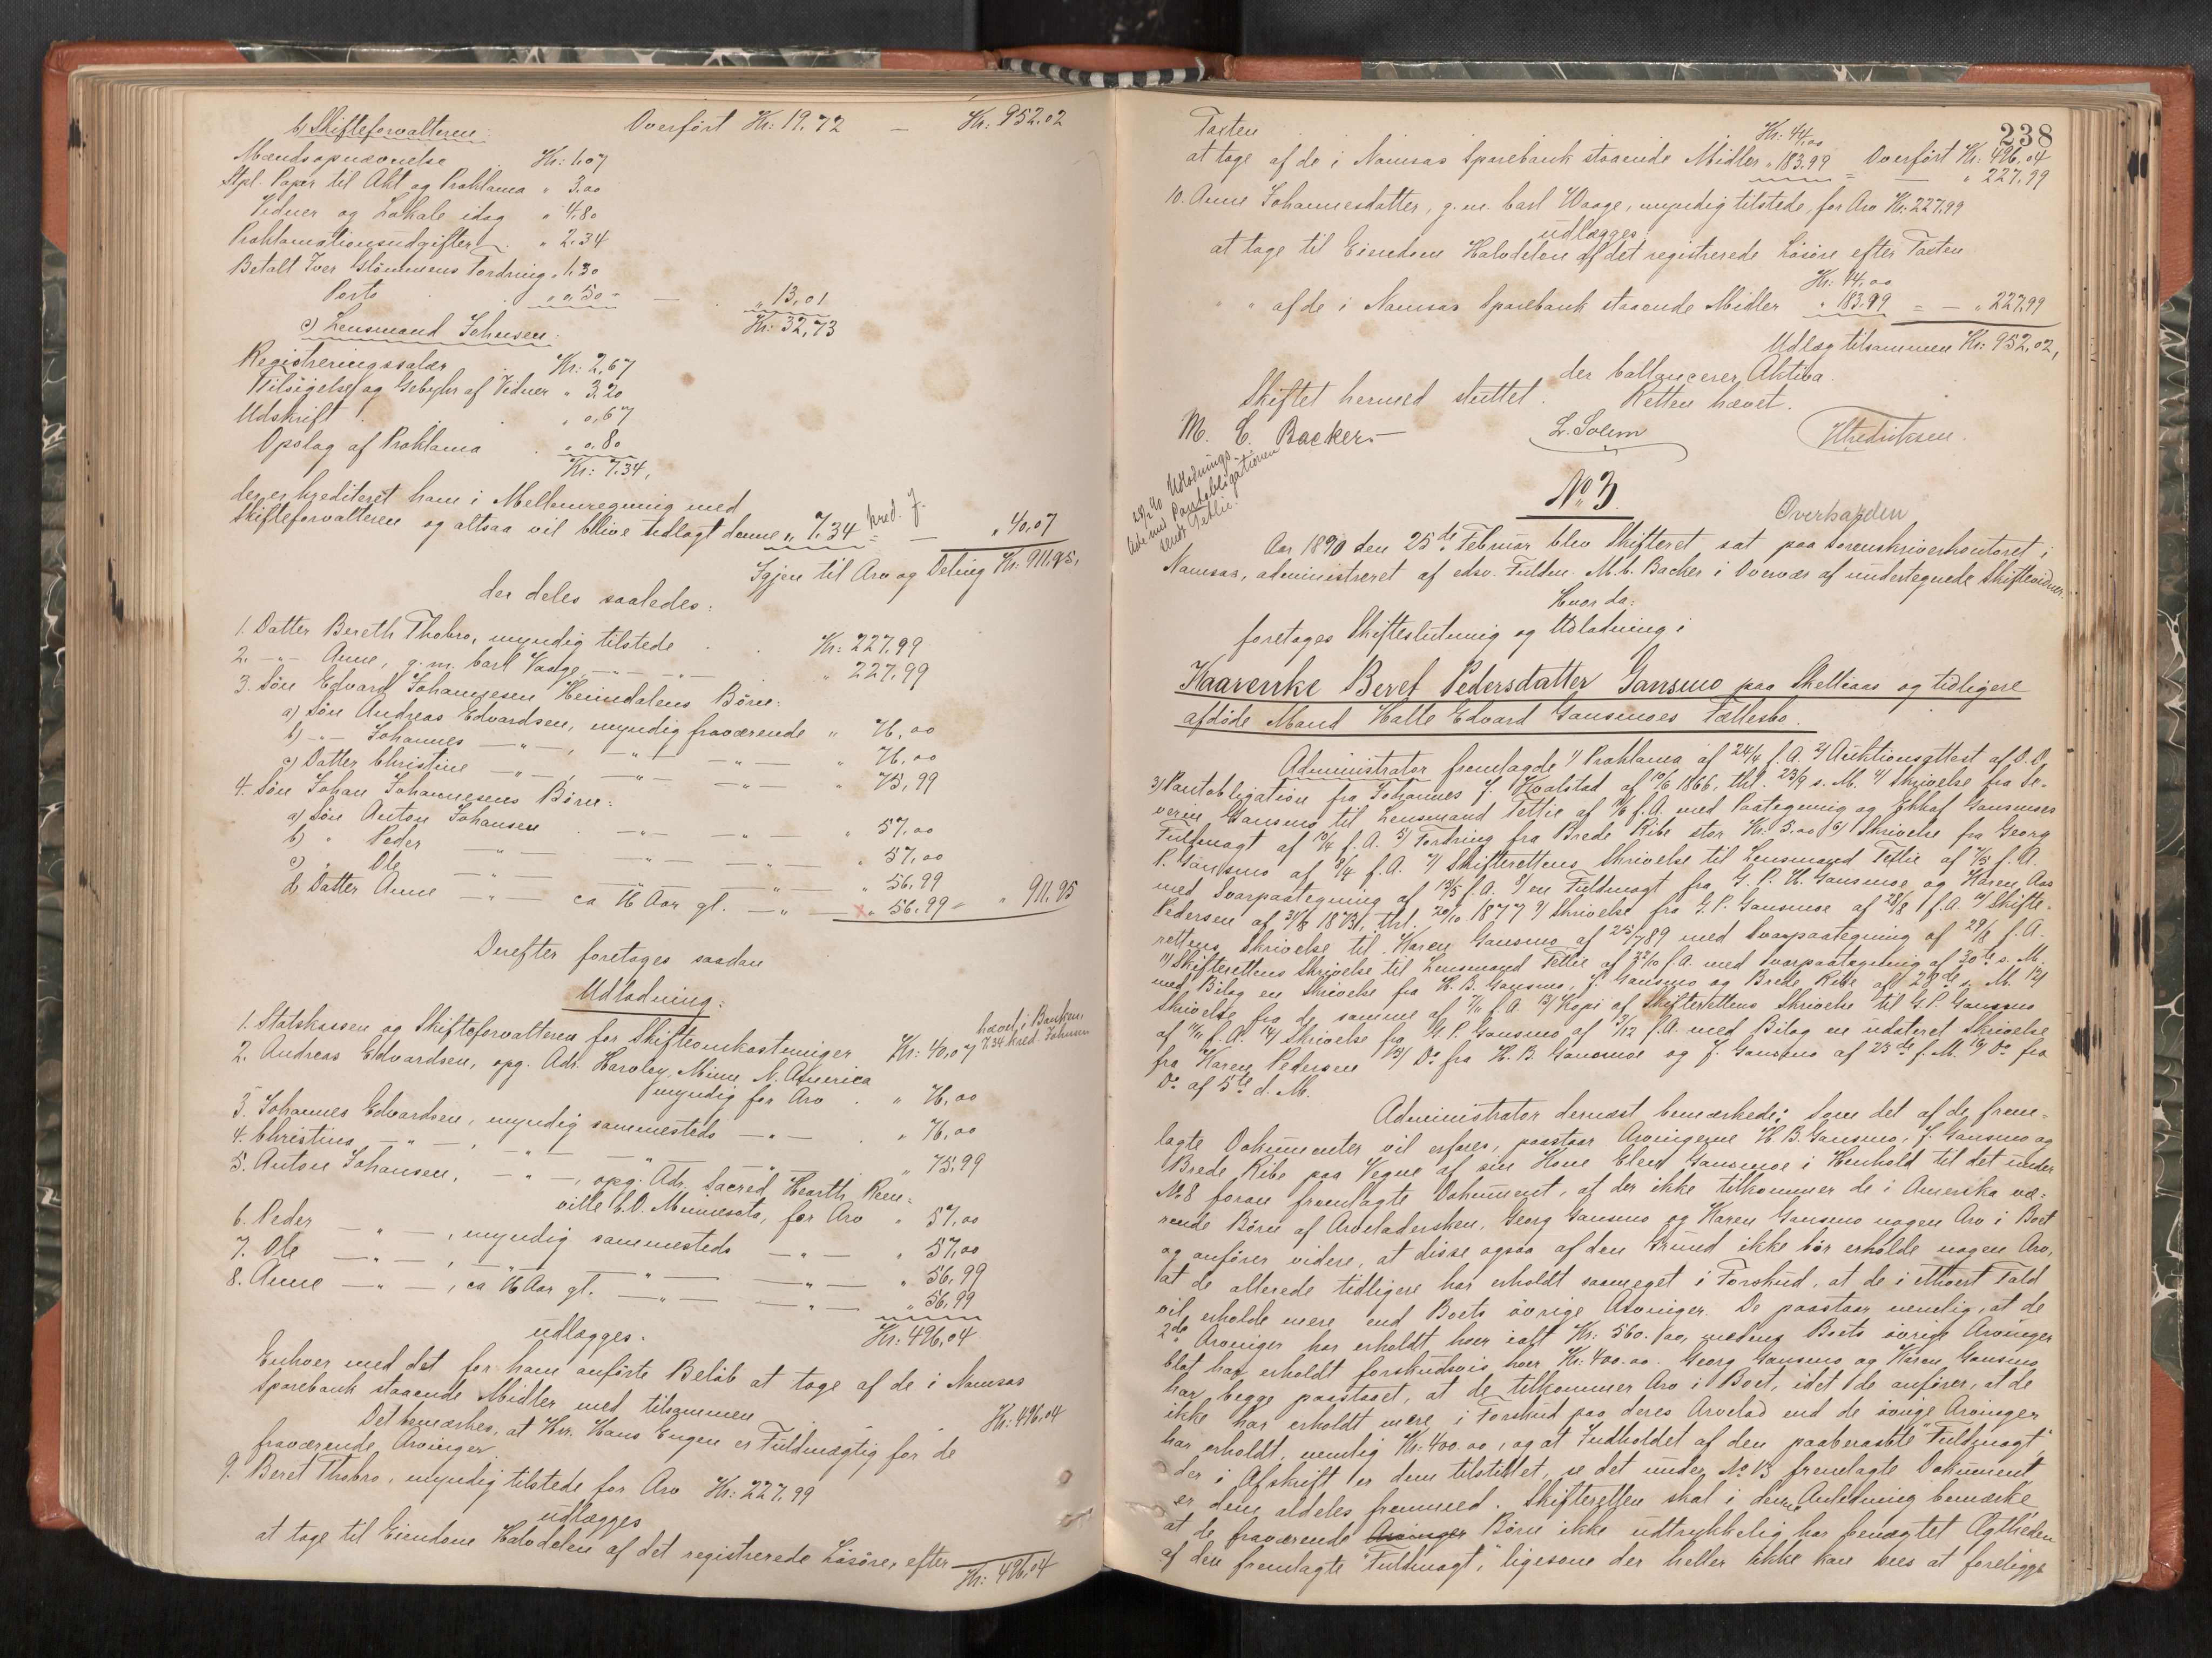 b) Skifteforvalteren: Overført Kr: 19.72 — Kr: 952.02
Mændsopnævnelse Kr: 1.07
Stpl. Papir til Akt og Proklama " 3.00
Vidner og Lokale idag " 4.80
Proklamationsudgifter " 2.34
Betalt Iver Glømmens Fordring " 1.30
Porto " 0.50 — " 13,01
Kr: 32,73
c) Lensmand Johnsen:
Registreringssalær Kr: 2,67
Tilsigelse og Gebyhr af Vidner " 3.20
Udskrift " 0,67
Opslag af Proklama " 0.80
Kr: 7.34,
der er krediteret ham i Mellemregning med
Skifteforvalteren og altsaa vil blive udlagt denne " 7.34 = kred. J. — " 40,07
Igjen til Arv og Deling Kr: 911,95,
der deles saaledes:
1. Datter Bereth Thobro, myndig tilstede Kr: 227,99
2. —"— Anne, g. m. Carl Vaage, —"— —"— " 227,99
3. Søn Edvard Johannesen Heimdalens Børn:
a) Søn Andreas Edvardsen, myndig fraværende " 76,00
b) —"— Johannes —"—, —"— —"— " 76,00
c) Datter Christine —"—, —"— —"— " 75,99
4. Søn Johan Johannesens Børn:
a) Søn Anton Johansen —"— —"— " 57,00
b) " Peder —"— —"— —"— " 57,00
c) " Ole —"— —"— —"— " 56,99
d) Datter Anne —"— ca 16 Aar gl. —"— " 56,99 = " 911,95
Derefter foretages saadan
Udlodning:
1. Statskassen og Skifteforvalteren for Skifteomkostninger Kr: 40,07 hævet i Banken 7.34 kred. Johnsen
2. Andreas Edvardsen, opg. Adr. Hawley, Minn. N. America
myndig for Arv " 76,00
3. Johannes Edvardsen, myndig sammesteds —"— " 76,00
4. Christina —"—, —"— —"— —"— " 75,99
5. Anton Johansen, —"—, opg. Adr. Sacred Hearth, Ren-
ville C.O. Minnesota, for Arv " 57,00
6. Peder —"—, myndig sammesteds —"— " 57,00
7. Ole —"—, —"— —"— —"— " 56,99
8. Anne —"—, ca 16 Aar gl. —"— —"— " 56,99
udlægges. Kr: 496,04
Enhver med det for ham anførte Beløb at tage af de i Namsos
Sparebank staaende Midler med tilsammen Kr: 496,04
Det bemærkes, at Hr. Hans Engen er Fuldmægtig for de
fraværende Arvinger
9. Beret Thobro, myndig tilstede for Arv Kr: 227,99
udlægges
at tage til Eiendom Halvdelen af det registrerede Løsøre, efter
Kr: 496,04
238
Taxten Kr. 44,00 Overført Kr: 496,04
at tage af de i Namsos Sparebank staaende Midler " 183.99 = — " 227,99
10. Anne Johannesdatter, g. m. Carl Waage, myndig tilstede, for Arv Kr: 227,99
udlægges
at tage til Eiendom Halvdelen af det registrerede Løsøre efter Taxten
Kr: 44,00
" " af de i Namsos Sparebank staaende Midler " 183.99 = — " 227,99
Udlæg tilsammen Kr: 952,02,
der ballancerer Aktiva.
Skiftet hermed sluttet. Retten hævet.
M. C. Backer L. Solem HFredriksen.
28/2 90 Udlodnings-
Akt med Pantobligationen
sendt Teflie.
No 3. Overhalden
Aar 1890 den 25de Februar blev Skifteret sat paa Sorenskriverkontoret i
Namsos, administreret af edsv. Fuldm. M. C. Backer i Overvær af undertegnede Skiftevidner.
Hvor da:
foretages Skifteslutning og Udlodning i
Kaarenke Beret Pedersdatter Gansmo paa Skelliaas og tidligere
afdøde Mand Halle Edvard Gansmoes Fællesbo.
Administrator fremlagde 1) Proklama af 24/4 f. A. 2) Auktionsattest af D.D.
3) Pantobligation fra Johannes J. Hvalstad af 10/6 1866, thl. 23/9 s. M. 4) Skrivelse fra Se-
verin Gansmo til Lensmand Teflie af f. A. med Paategning og Gansmoes
Fuldmagt af 10/4 f. A. 5) Fordring fra Brede Ribe stor Kr. 5.00 6) Skrivelse fra Georg
P. Gansmo af 8/4 f. A. 7) Skifterettens Skrivelse til Lensmand Teflie af 7/5 f. A.
med Svarpaategning af 13/5 f. A. 8) en Fuldmagt fra G. P. H. Gansmoe og Karen Aas
Pedersen af 31/8 1873, thl. 20/10 1877 9) Skrivelse fra G. P. Gansmoe af 28/8 f. A. 10) Skifte-
rettens Skrivelse til Karen Gansmo af 25/7 89 med Svarpaategning af 29/8 f. A.
11) Skifterettens Skrivelse til Lensmand Teflie af 22/10 f. A. med Svarpaategning af 30te s. M.
med Bilag en Skrivelse fra H. B. Gansmo, J. Gansmo og Brede Ribe af 28de s. M. 12)
Skrivelse fra de samme af 7/11 f. A. 13) Kopi af Skifterettens Skrivelse til G. P. Gansmo
af 11/11 f. A. 14) Skrivelse fra G. P. Gansmo af 3/12 f. A. med Bilag en udateret Skrivelse
fra Karen Pedersen 15) Do. fra H. B. Gansmoe og J. Gansmo af 23de f. M. 16) Do fra
Do. af 5te d. M.
Administrator dernæst bemærkede: Som det af de frem-
lagte Dokumenter vil erfares, paastaar Arvingerne H. B. Gansmo, J. Gansmo og
Brede Ribe paa Vegne af sin Kone Elen Gansmoe i Henhold til det under
No 8 foran fremlagte Dokument, at der ikke tilkommer de i Amerika væ-
rende Børn af Arveladersken, Georg Gansmo og Karen Gansmo nogen Arv i Boet
og anfører videre, at disse ogsaa af den Grund ikke bør erholde nogen Arv,
at de allerede tidligere har erholdt saameget i Forskud, at de i ethvert Fald
vil erholde mere end Boets øvrige Arvinger. De paastaar nemlig, at de
2de Arvinger har erholdt hver ialt Kr: 560.00, medens Boets øvrige Arvinger
blot har erholdt forskudsvis hver Kr: 400.00. Georg Gansmo og Karen Gansmo
har begge paastaaet, at de tilkommer Arv i Boet, idet de anfører, at de
ikke har erholdt mere i Forskud paa deres Arvelod end de øvrige Arvinger
har erholdt, nemlig Kr: 400.00, og at Indholdet af den paaberaabte "Fuldmagt",
der i Afskrift er dem tilstillet, se det under No 13 fremlagte Dokument,
er dem aldeles fremmed. Skifteretten skal i denne Anledning bemærke
at de fraværende Arvinger Børn ikke udtrykkelig har benægtet Ægtheden
af den fremlagte "Fuldmagt," ligesom der heller ikke kan sees at foreligge